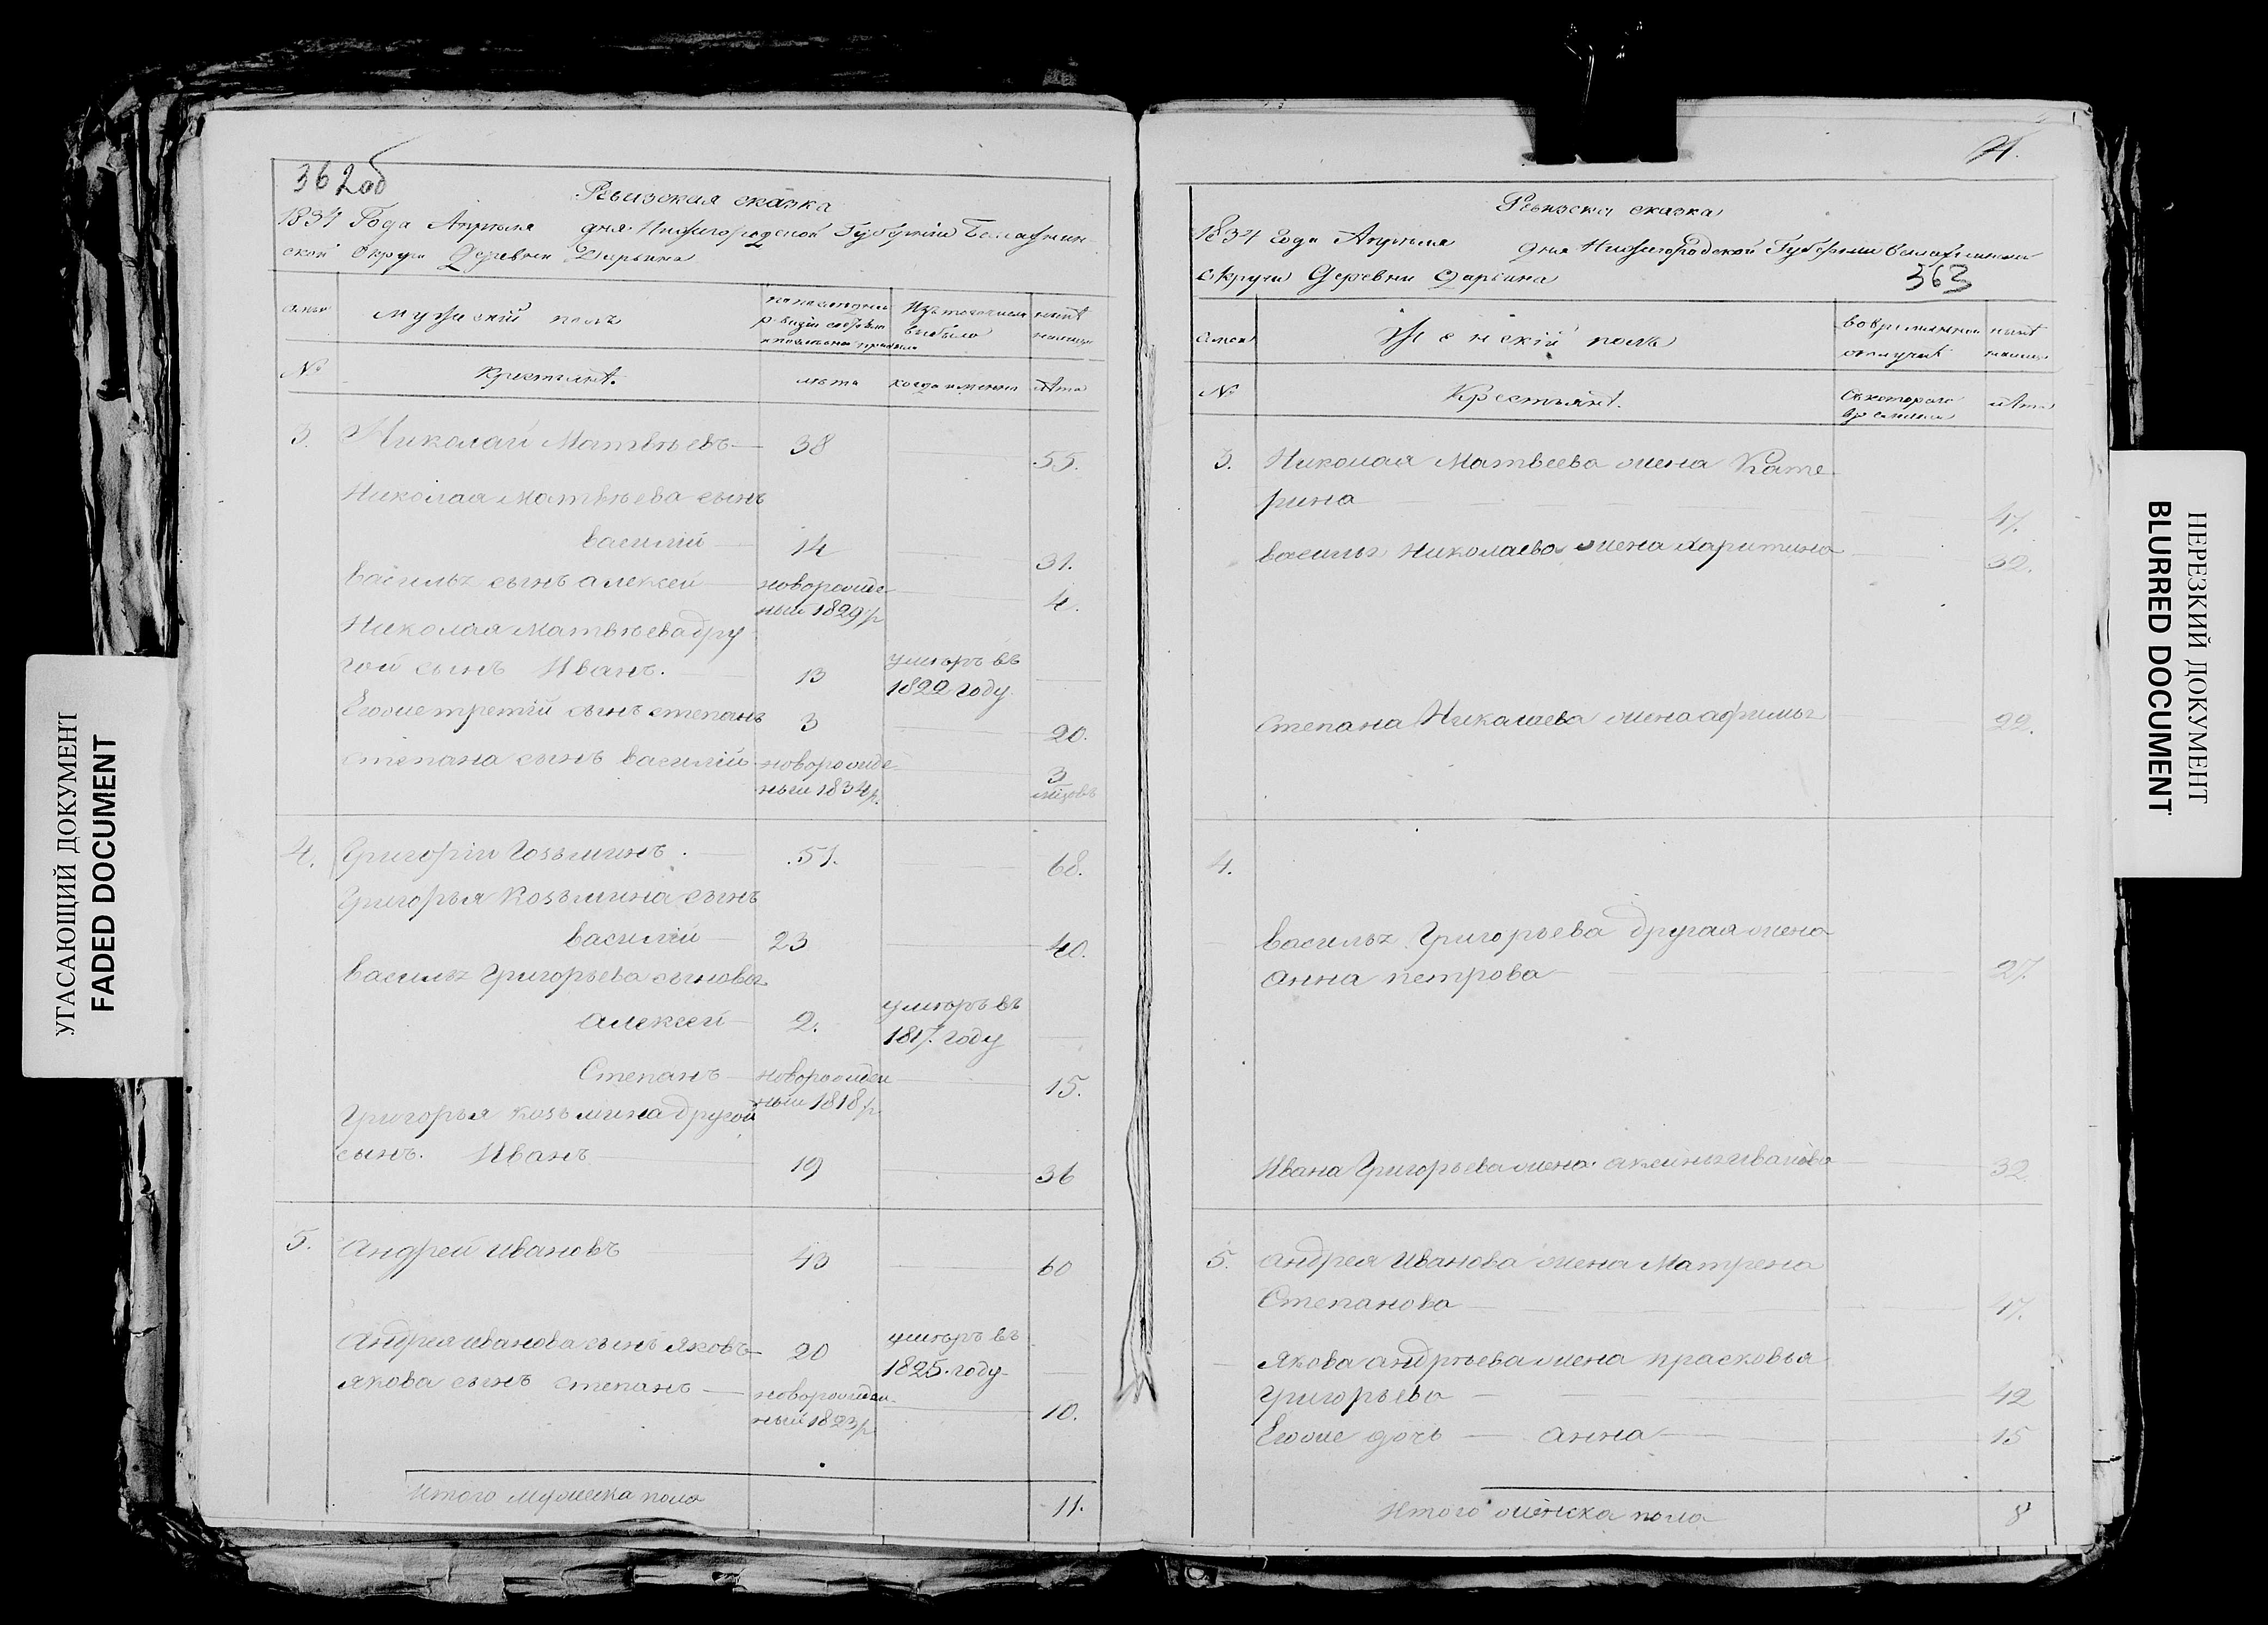 362об
Ревизская сказка
1834 Года Апреля дня Нижегородской Губернии Балахнин-
ской Округи Деревни Дарьина
мужеский полъ
выбыло
№ Крестьяне. лета когда именно лета
3. Николай Матвѣевъ 38 55.
Николая Матвѣева сынъ
василий 14 31.
Василья сынъ алексей новорожде-
ный 1829 р 4.
Николая Матвѣева дру
гой сынъ Иванъ. 13 умеръ въ
1822 году.
Егоже третий сынъ степанъ 3 20.
степана сынъ василий новорожде
ный 1834 р. 3
мцовъ
4. Григорий Козьминъ. 51. 68.
Григорья Козьмина сынъ
василий 23 40.
Василья Григорьева сыновья
алексей 2. умеръ въ
1817. году
Степанъ новорожден
ный 1818 р. 15.
Григорья козьмина другой
сынъ. Иванъ 19 36
5. Андрей ивановъ 43 60
Андрея иванова сынъ яковъ 20 умеръ въ
1825. году
якова сынъ степанъ новорожден
ный 1823 р. 10.
Итого мужеска пола 11.
Ревизска сказка
1834 года Апреля дня Нижегородской Губернии
округи Деревни Дарьина 363
Женский полъ
№ Крестьяне. лета
3. Николая Матвеева жена Кате-
рина 47.
василья Николаева жена харитина 32.
Степана Николаева жена афимья 22.
4.
Василья Григорьева другая жена
анна петрова 27.
Ивана Григорьева жена аксинья иванова 32
5. андрея Иванова жена Матрена
Степанова
якова андрѣева жена прасковья
григорьева 42
Егоже дочь анна 15
Итого женска пола 8
УГАСАЮЩИЙ ДОКУМЕНТ
FADED DOCUMENT
ПЕРЕЗКИЙ ДОКУМЕНТ
BLURRED DOCUMENT